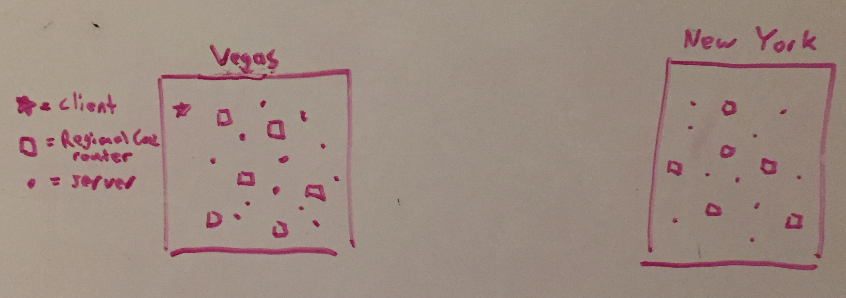 Vegas
New York
= client
= Regional
router
= server